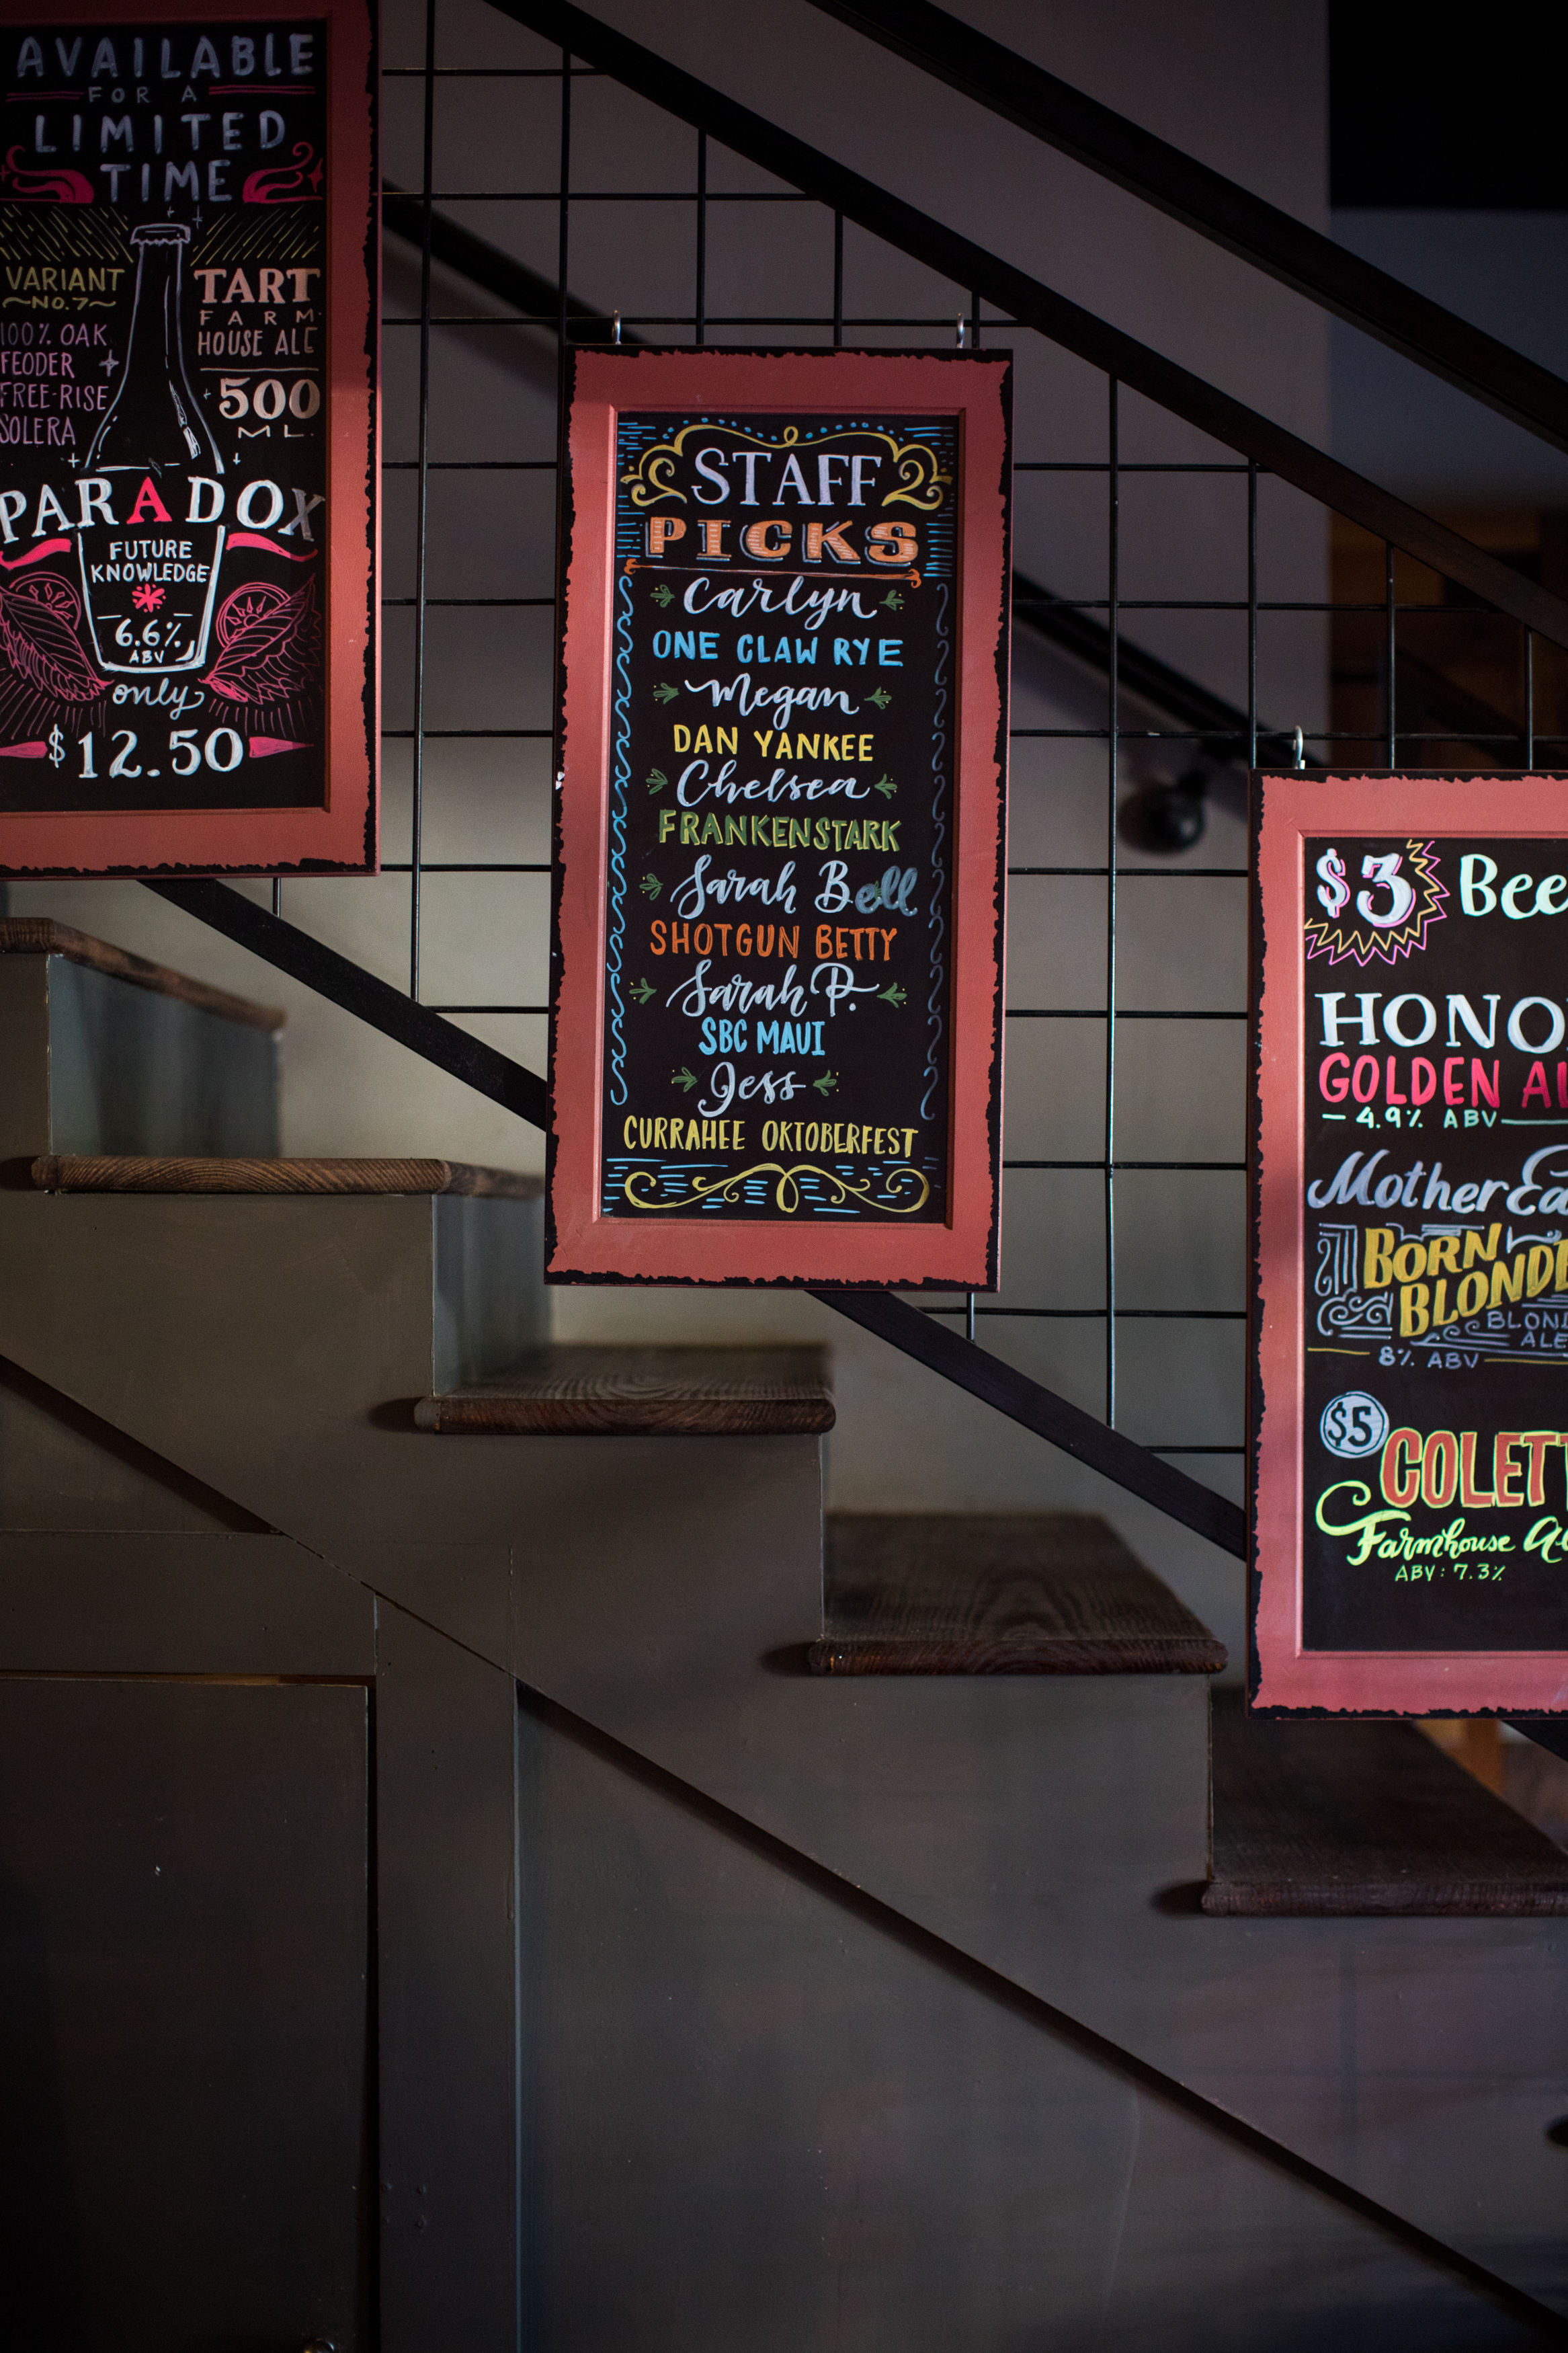 AVAILABLE
FOR A
LIMITED
TIME
VARIANT
~NO.7~
100% OAK
FEODER
FREE-RISE
SOLERA
TART
FARM
HOUSE ALE
500
ML.
PARADOX
FUTURE
KNOWLEDGE
6.6%
ABV
only
$12.50
STAFF
PICKS
Carlyn
ONE CLAW RYE
Megan
DAN YANKEE
Chelsea
FRANKENSTARK
Sarah Bell
SHOTGUN BETTY
Sarah P.
SBC MAUI
Jess
CURRAHEE OKTOBERFEST
$3 Bee
HONO
GOLDEN AL
- 4.9% ABV -
Mother Ea
BORN
BLONDE
BLOND
ALE
8% ABV
$5
COLETT
Farmhouse Al
ABV: 7.3%